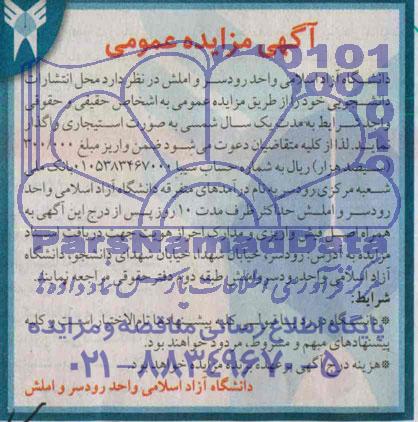 آگهی مزایده عمومی
دانشگاه آزاد اسلامی واحد رودسر و املش در نظر دارد محل انتشارات
دانشجویی خود را از طریق مزایده عمومی به اشخاص حقیقی و حقوقی
واجد شرایط به مدت یک سال شمسی به صورت استیجاری واگذار
نماید. لذا از کلیه متقاضیان دعوت می‌شود ضمن واریز مبلغ ۳۰۰/۰۰۰
(سیصد هزار) ریال به شماره حساب سیبا بانک ملی
شعبه مرکزی رودسر به نام درآمدهای متفرقه دانشگاه آزاد اسلامی واحد
رودسر و املش حداکثر ظرف مدت ۱۰ روز پس از درج این آگهی به
همراه اصل فیش واریزی و مدارک احراز هویت جهت دریافت اسناد
مزایده به آدرس: رودسر، خیابان شهدا، خیابان شهدای دانشجو، دانشگاه
آزاد اسلامی واحد رودسر و املش طبقه دوم دفتر حقوقی مراجعه نمایند.
شرایط:
*دانشگاه در رد یا قبول کلیه پیشنهادها تام‌الاختیار است و کلیه
پیشنهادهای مبهم و مشروط، مردود خواهند بود.
*هزینه درج آگهی بر عهده برنده مزایده خواهد بود.
دانشگاه آزاد اسلامی واحد رودسر و املش
ParsNamadData
پایگاه اطلاع رسانی مناقصه و مزایده
۰۲۱-۸۸۳۴۹۶۷۰-۵